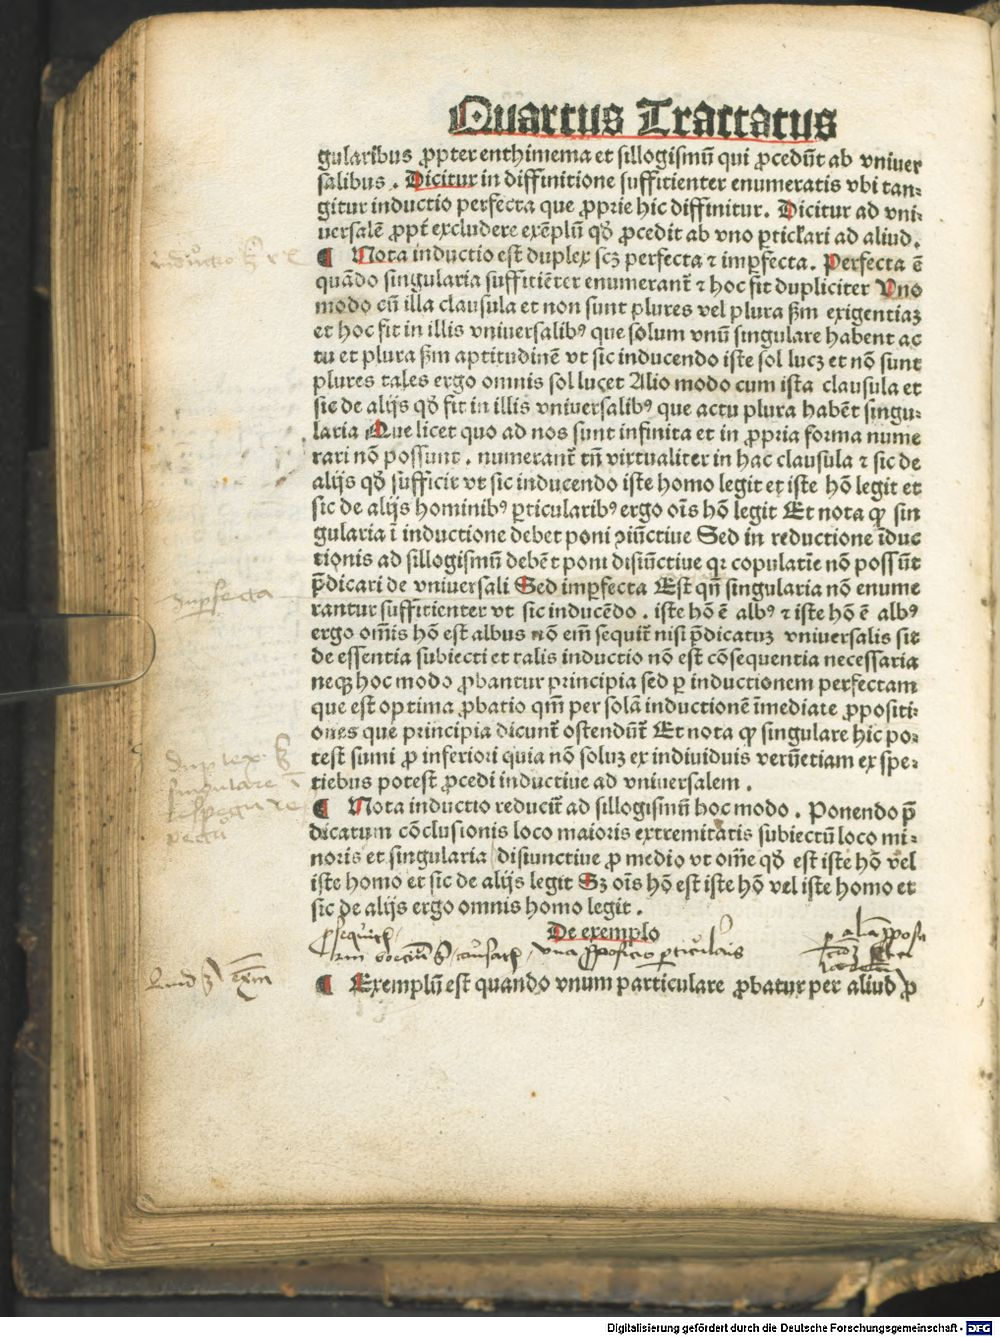 Quartus Tractatus
gularibus ꝓpter enthimema et sillogismū qui ꝓcedūt ab vniuer
salibus . Dicitur in diffinitione suffitienter enumeratis vbi tan⸗
gitur inductio perfecta que ꝓprie hic diffinitur. Dicitur ad vni⸗
uersalē ꝓpt̄ excludere exēplū qd̄ ꝓcedit ab vno ꝑticl̄ari ad aliud.
¶ Nota inductio est duplex scꝫ perfecta ⁊ imꝑfecta. Perfecta ē
quādo singularia suffitiēter enumerant̄ ⁊ hoc fit dupliciter Uno
modo cū illa clausula et non sunt plures vel plura ẜm exigentiaꝫ
et hoc fit in illis vniuersalibꝰ que solum vnū singulare habent ac
tu et plura ẜm aptitudinē vt sic inducendo iste sol lucꝫ et nō sunt
plures tales ergo omnis sol lucet Alio modo cum ista clausula et
sic de alijs qd̄ fit in illis vniuersalibꝰ que actu plura habēt singu⸗
laria Que licet quo ad nos sunt infinita et in ꝓpria forma nume
rari nō possunt . numerant̄ tn̄ virtualiter in hac clausula ⁊ sic de
alijs qd̄ sufficit vt sic inducendo iste homo legit et iste hō legit et
sic de alijs hominibꝰ ꝑticularibꝰ ergo oīs hō legit Et nota ꝙ sin
gularia ī inductione debet poni ꝯiūctiue Sed in reductione īduc
tionis ad sillogismū debēt poni disiūctiue qꝛ copulatie nō possūt
p̄dicari de vniuersali Sed imꝑfecta Est qn̄ singularia nō enume
rantur suffitienter vt sic inducēdo . iste hō ē albꝰ ⁊ iste hō ē albꝰ
ergo om̄is hō est albus nō em̄ sequit̄ nisi p̄dicatuꝫ vniuersalis sit
de essentia subiecti et talis inductio nō est cōsequentia necessaria
neqꝫ hoc modo ꝓbantur principia sed ꝑ inductionem perfectam
que est optima ꝓbatio qm̄ per solā inductionē īmediate ꝓpositi⸗
ones que principia dicunt̄ ostendūt̄ Et nota ꝙ singulare hic po⸗
test sumi ꝓ inferiori quia nō soluꝫ ex indiuiduis verūetiam ex spe⸗
tiebus potest ꝓcedi inductiue ad vniuersalem .
¶ Nota inductio reducit̄ ad sillogismū hoc modo . Ponendo p̄
dicatum cōclusionis loco maioris extremitatis subiectū loco mi⸗
noris et singularia disiunctiue ꝓ medio vt om̄e qd̄ est iste hō vel
iste homo et sic de alijs legit Sꝫ oīs hō est iste hō vel iste homo et
sic de alijs ergo omnis homo legit .
De exemplo
¶ Exemplū est quando vnum particulare ꝓbatur per aliud ꝓ
imperfecta
duplex
singulare
Digitalisierung gefördert durch die Deutsche Forschungsgemeinschaft - DFG